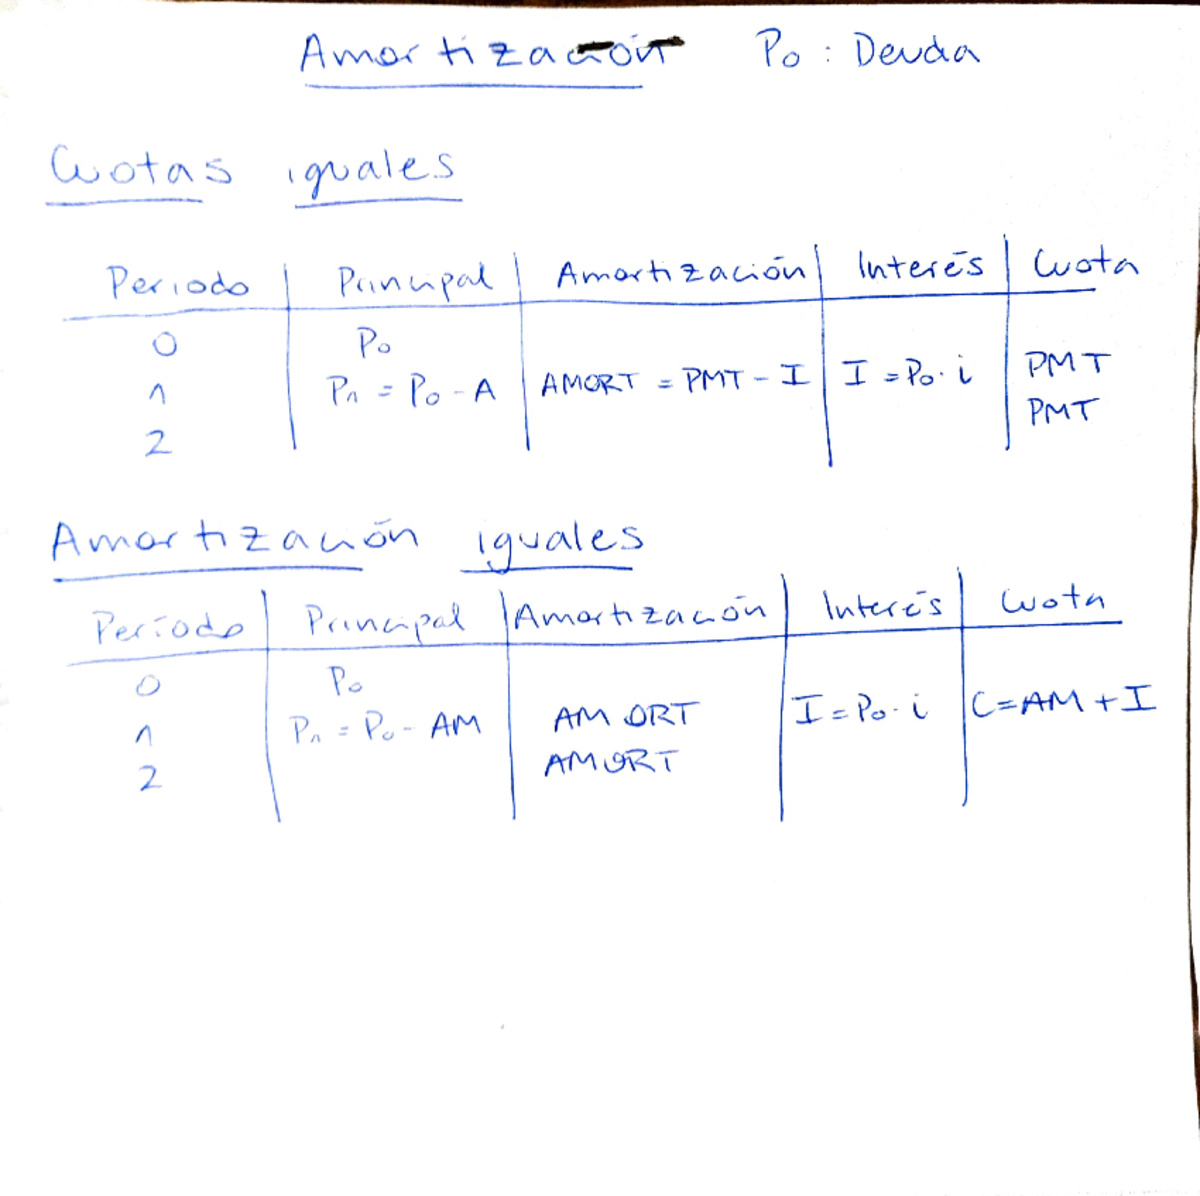 Amortización P₀ : Deuda
Cuotas iguales
Periodo Principal Amortización Interés Cuota
0 P₀
1 P₁ = P₀ - A AMORT = PMT - I I = P₀ · i PMT
2 PMT
Amortización iguales
Período Principal Amortización Interés Cuota
0 P₀
1 P₁ = P₀ - AM AMORT I = P₀ · i C = AM + I
2 AMORT